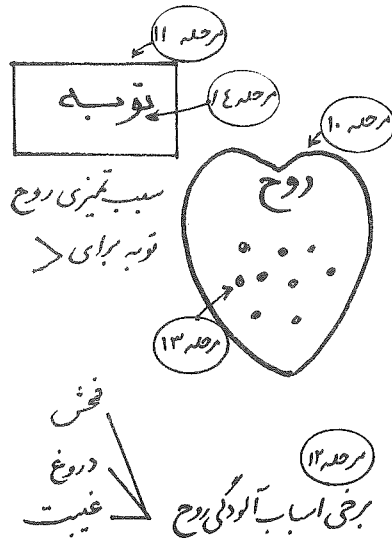 مرحله ۱۱
توبه
مرحله ۱۴
مرحله ۱۰
روح
سبب تمیزی روح
توبه برای >
مرحله ۱۳
فحش
دروغ
غیبت
مرحله ۱۲
برخی اسباب آلودگی روح